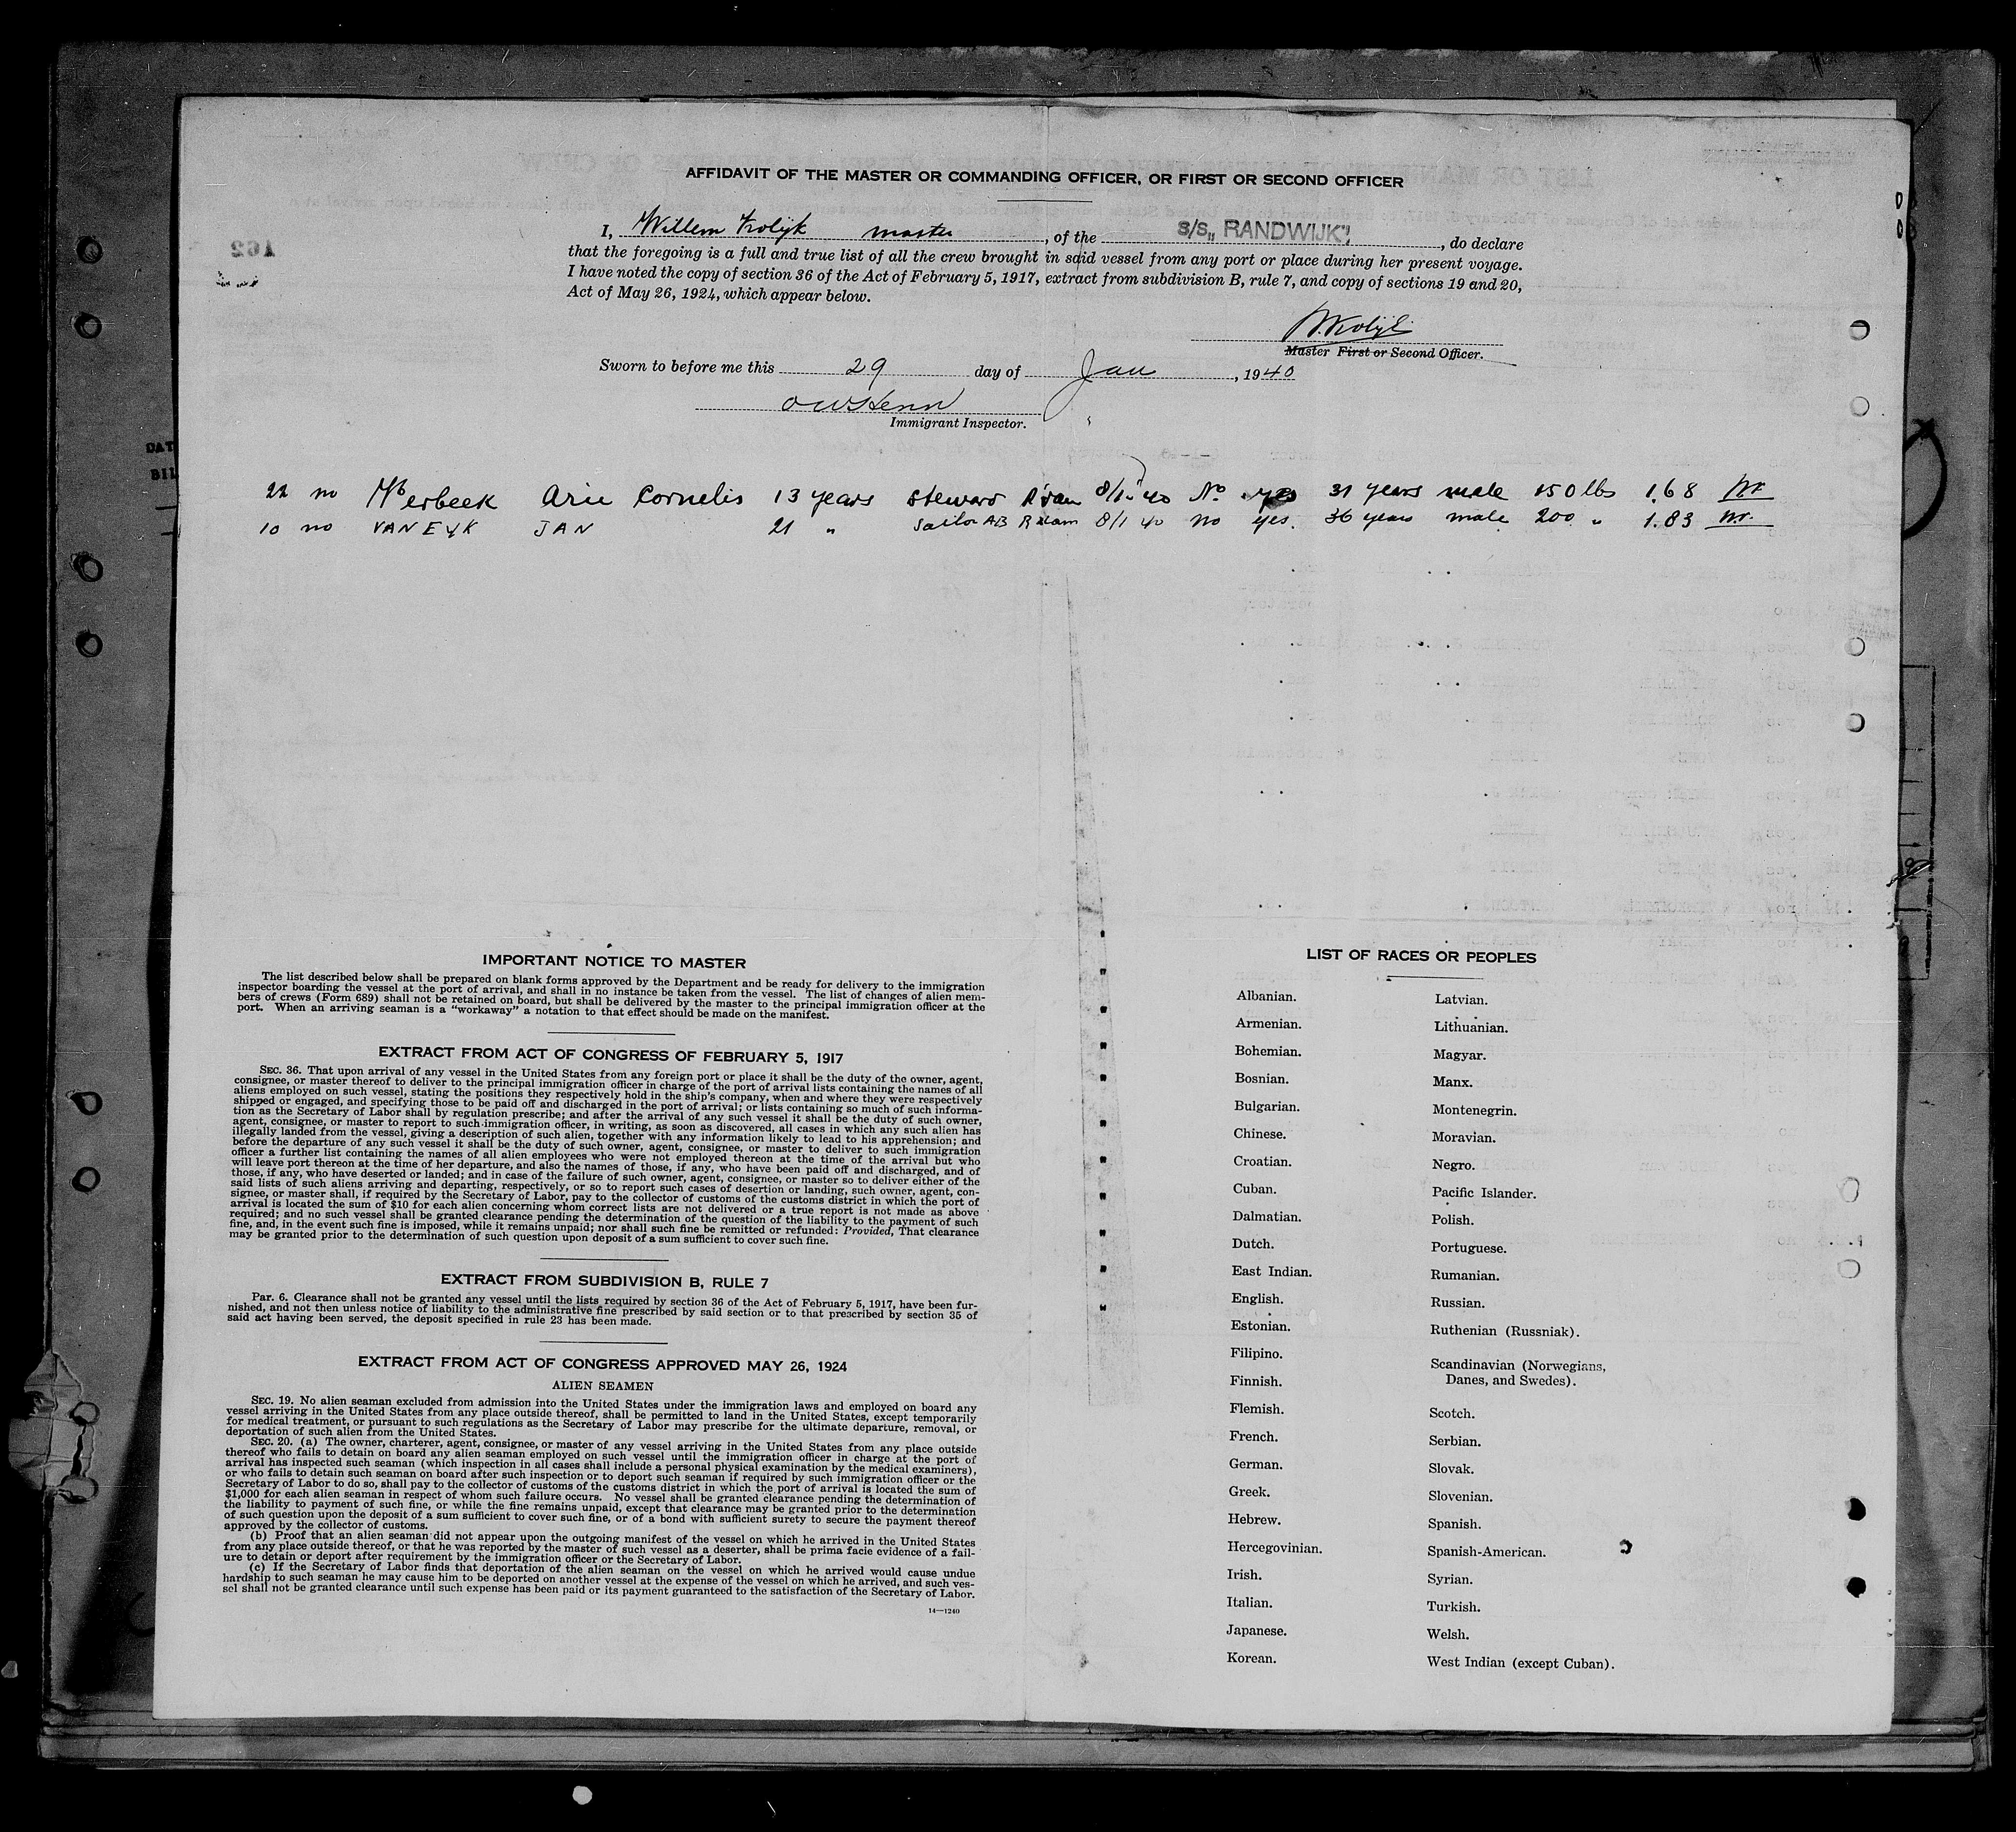 AFFIDAVIT OF THE MASTER OR COMMANDING OFFICER, OR FIRST OR SECOND OFFICER
I, Willem Krolijk master, of the S/S „ RANDWIJK", do declare
that the foregoing is a full and true list of all the crew brought in said vessel from any port or place during her present voyage.
I have noted the copy of section 36 of the Act of February 5, 1917, extract from subdivision B, rule 7, and copy of sections 19 and 20,
Act of May 26, 1924, which appear below.
Master First or Second Officer.
Sworn to before me this 29 day of Jan, 1940
Immigrant Inspector.
22 no erbeek Arie Cornelis 13 years steward R'dam 8/1 40 No. yes 31 years male 150 lbs 1.68
10 no VAN EYK JAN 21 " Sailor AB R'dam 8/1 40 no yes. 36 years male 200 " 1.83
IMPORTANT NOTICE TO MASTER
The list described below shall be prepared on blank forms approved by the Department and be ready for delivery to the immigration
inspector boarding the vessel at the port of arrival, and shall in no instance be taken from the vessel. The list of changes of alien mem-
bers of crews (Form 689) shall not be retained on board, but shall be delivered by the master to the principal immigration officer at the
port. When an arriving seaman is a "workaway" a notation to that effect should be made on the manifest.
EXTRACT FROM ACT OF CONGRESS OF FEBRUARY 5, 1917
SEC. 36. That upon arrival of any vessel in the United States from any foreign port or place it shall be the duty of the owner, agent,
consignee, or master thereof to deliver to the principal immigration officer in charge of the port of arrival lists containing the names of all
aliens employed on such vessel, stating the positions they respectively hold in the ship's company, when and where they were respectively
shipped or engaged, and specifying those to be paid off and discharged in the port of arrival; or lists containing so much of such informa-
tion as the Secretary of Labor shall by regulation prescribe; and after the arrival of any such vessel it shall be the duty of such owner,
agent, consignee, or master to report to such immigration officer, in writing, as soon as discovered, all cases in which any such alien has
illegally landed from the vessel, giving a description of such alien, together with any information likely to lead to his apprehension; and
before the departure of any such vessel it shall be the duty of such owner, agent, consignee, or master to deliver to such immigration
officer a further list containing the names of all alien employees who were not employed thereon at the time of the arrival but who
will leave port thereon at the time of her departure, and also the names of those, if any, who have been paid off and discharged, and of
those, if any, who have deserted or landed; and in case of the failure of such owner, agent, consignee, or master so to deliver either of the
said lists of such aliens arriving and departing, respectively, or so to report such cases of desertion or landing, such owner, agent, con-
signee, or master shall, if required by the Secretary of Labor, pay to the collector of customs of the customs district in which the port of
arrival is located the sum of $10 for each alien concerning whom correct lists are not delivered or a true report is not made as above
required; and no such vessel shall be granted clearance pending the determination of the question of the liability to the payment of such
fine, and, in the event such fine is imposed, while it remains unpaid; nor shall such fine be remitted or refunded: Provided, That clearance
may be granted prior to the determination of such question upon deposit of a sum sufficient to cover such fine.
EXTRACT FROM SUBDIVISION B, RULE 7
Par. 6. Clearance shall not be granted any vessel until the lists required by section 36 of the Act of February 5, 1917, have been fur-
nished, and not then unless notice of liability to the administrative fine prescribed by said section or to that prescribed by section 35 of
said act having been served, the deposit specified in rule 23 has been made.
EXTRACT FROM ACT OF CONGRESS APPROVED MAY 26, 1924
ALIEN SEAMEN
SEC. 19. No alien seaman excluded from admission into the United States under the immigration laws and employed on board any
vessel arriving in the United States from any place outside thereof, shall be permitted to land in the United States, except temporarily
for medical treatment, or pursuant to such regulations as the Secretary of Labor may prescribe for the ultimate departure, removal, or
deportation of such alien from the United States.
SEC. 20. (a) The owner, charterer, agent, consignee, or master of any vessel arriving in the United States from any place outside
thereof who fails to detain on board any alien seaman employed on such vessel until the immigration officer in charge at the port of
arrival has inspected such seaman (which inspection in all cases shall include a personal physical examination by the medical examiners),
or who fails to detain such seaman on board after such inspection or to deport such seaman if required by such immigration officer or the
Secretary of Labor to do so, shall pay to the collector of customs of the customs district in which the port of arrival is located the sum of
$1,000 for each alien seaman in respect of whom such failure occurs. No vessel shall be granted clearance pending the determination of
the liability to payment of such fine, or while the fine remains unpaid, except that clearance may be granted prior to the determination
of such question upon the deposit of a sum sufficient to cover such fine, or of a bond with sufficient surety to secure the payment thereof
approved by the collector of customs.
(b) Proof that an alien seaman did not appear upon the outgoing manifest of the vessel on which he arrived in the United States
from any place outside thereof, or that he was reported by the master of such vessel as a deserter, shall be prima facie evidence of a fail-
ure to detain or deport after requirement by the immigration officer or the Secretary of Labor.
(c) If the Secretary of Labor finds that deportation of the alien seaman on the vessel on which he arrived would cause undue
hardship to such seaman he may cause him to be deported on another vessel at the expense of the vessel on which he arrived, and such ves-
sel shall not be granted clearance until such expense has been paid or its payment guaranteed to the satisfaction of the Secretary of Labor.
14—1240
LIST OF RACES OR PEOPLES
Albanian.
Armenian.
Bohemian.
Bosnian.
Bulgarian.
Chinese.
Croatian.
Cuban.
Dalmatian.
Dutch.
East Indian.
English.
Estonian.
Filipino.
Finnish.
Flemish.
French.
German.
Greek.
Hebrew.
Hercegovinian.
Irish.
Italian.
Japanese.
Korean.
Latvian.
Lithuanian.
Magyar.
Manx.
Montenegrin.
Moravian.
Negro.
Pacific Islander.
Polish.
Portuguese.
Rumanian.
Russian.
Ruthenian (Russniak).
Scandinavian (Norwegians,
Danes, and Swedes).
Scotch.
Serbian.
Slovak.
Slovenian.
Spanish.
Spanish-American.
Syrian.
Turkish.
Welsh.
West Indian (except Cuban).